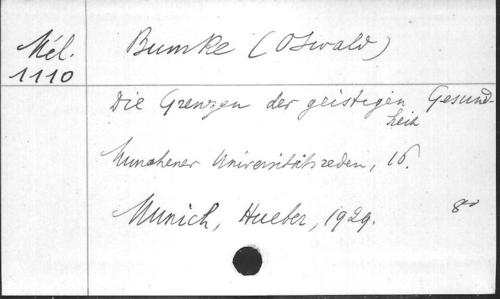 Mél.
1110
Bumke (Oswald)
Die Grenzen der geistigen Gesund-
heit
Munchener Universitätsreden, 16.
Munich, Hueber, 1929. 8°